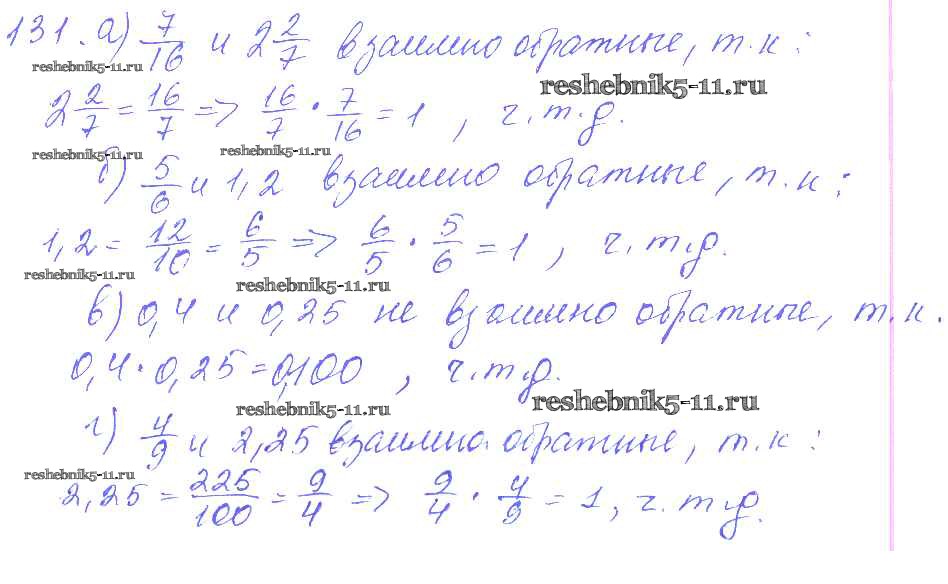 131. а) 7/16 и 2 2/7 взаимно обратные, т.к:
reshebnik5-11.ru
reshebnik5-11.ru
2 2/7 = 16/7 => 16/7 · 7/16 = 1 , ч.т.д.
reshebnik5-11.ru reshebnik5-11.ru
б) 5/6 и 1,2 взаимно обратные, т.к:
1,2 = 12/10 = 6/5 => 6/5 · 5/6 = 1 , ч.т.д.
reshebnik5-11.ru reshebnik5-11.ru
в) 0,4 и 0,25 не взаимно обратные, т.к.
0,4 · 0,25 = 0,100 , ч.т.д.
reshebnik5-11.ru reshebnik5-11.ru
г) 4/9 и 2,25 взаимно обратные, т.к:
reshebnik5-11.ru
2,25 = 225/100 = 9/4 => 9/4 · 4/9 = 1, ч.т.д.